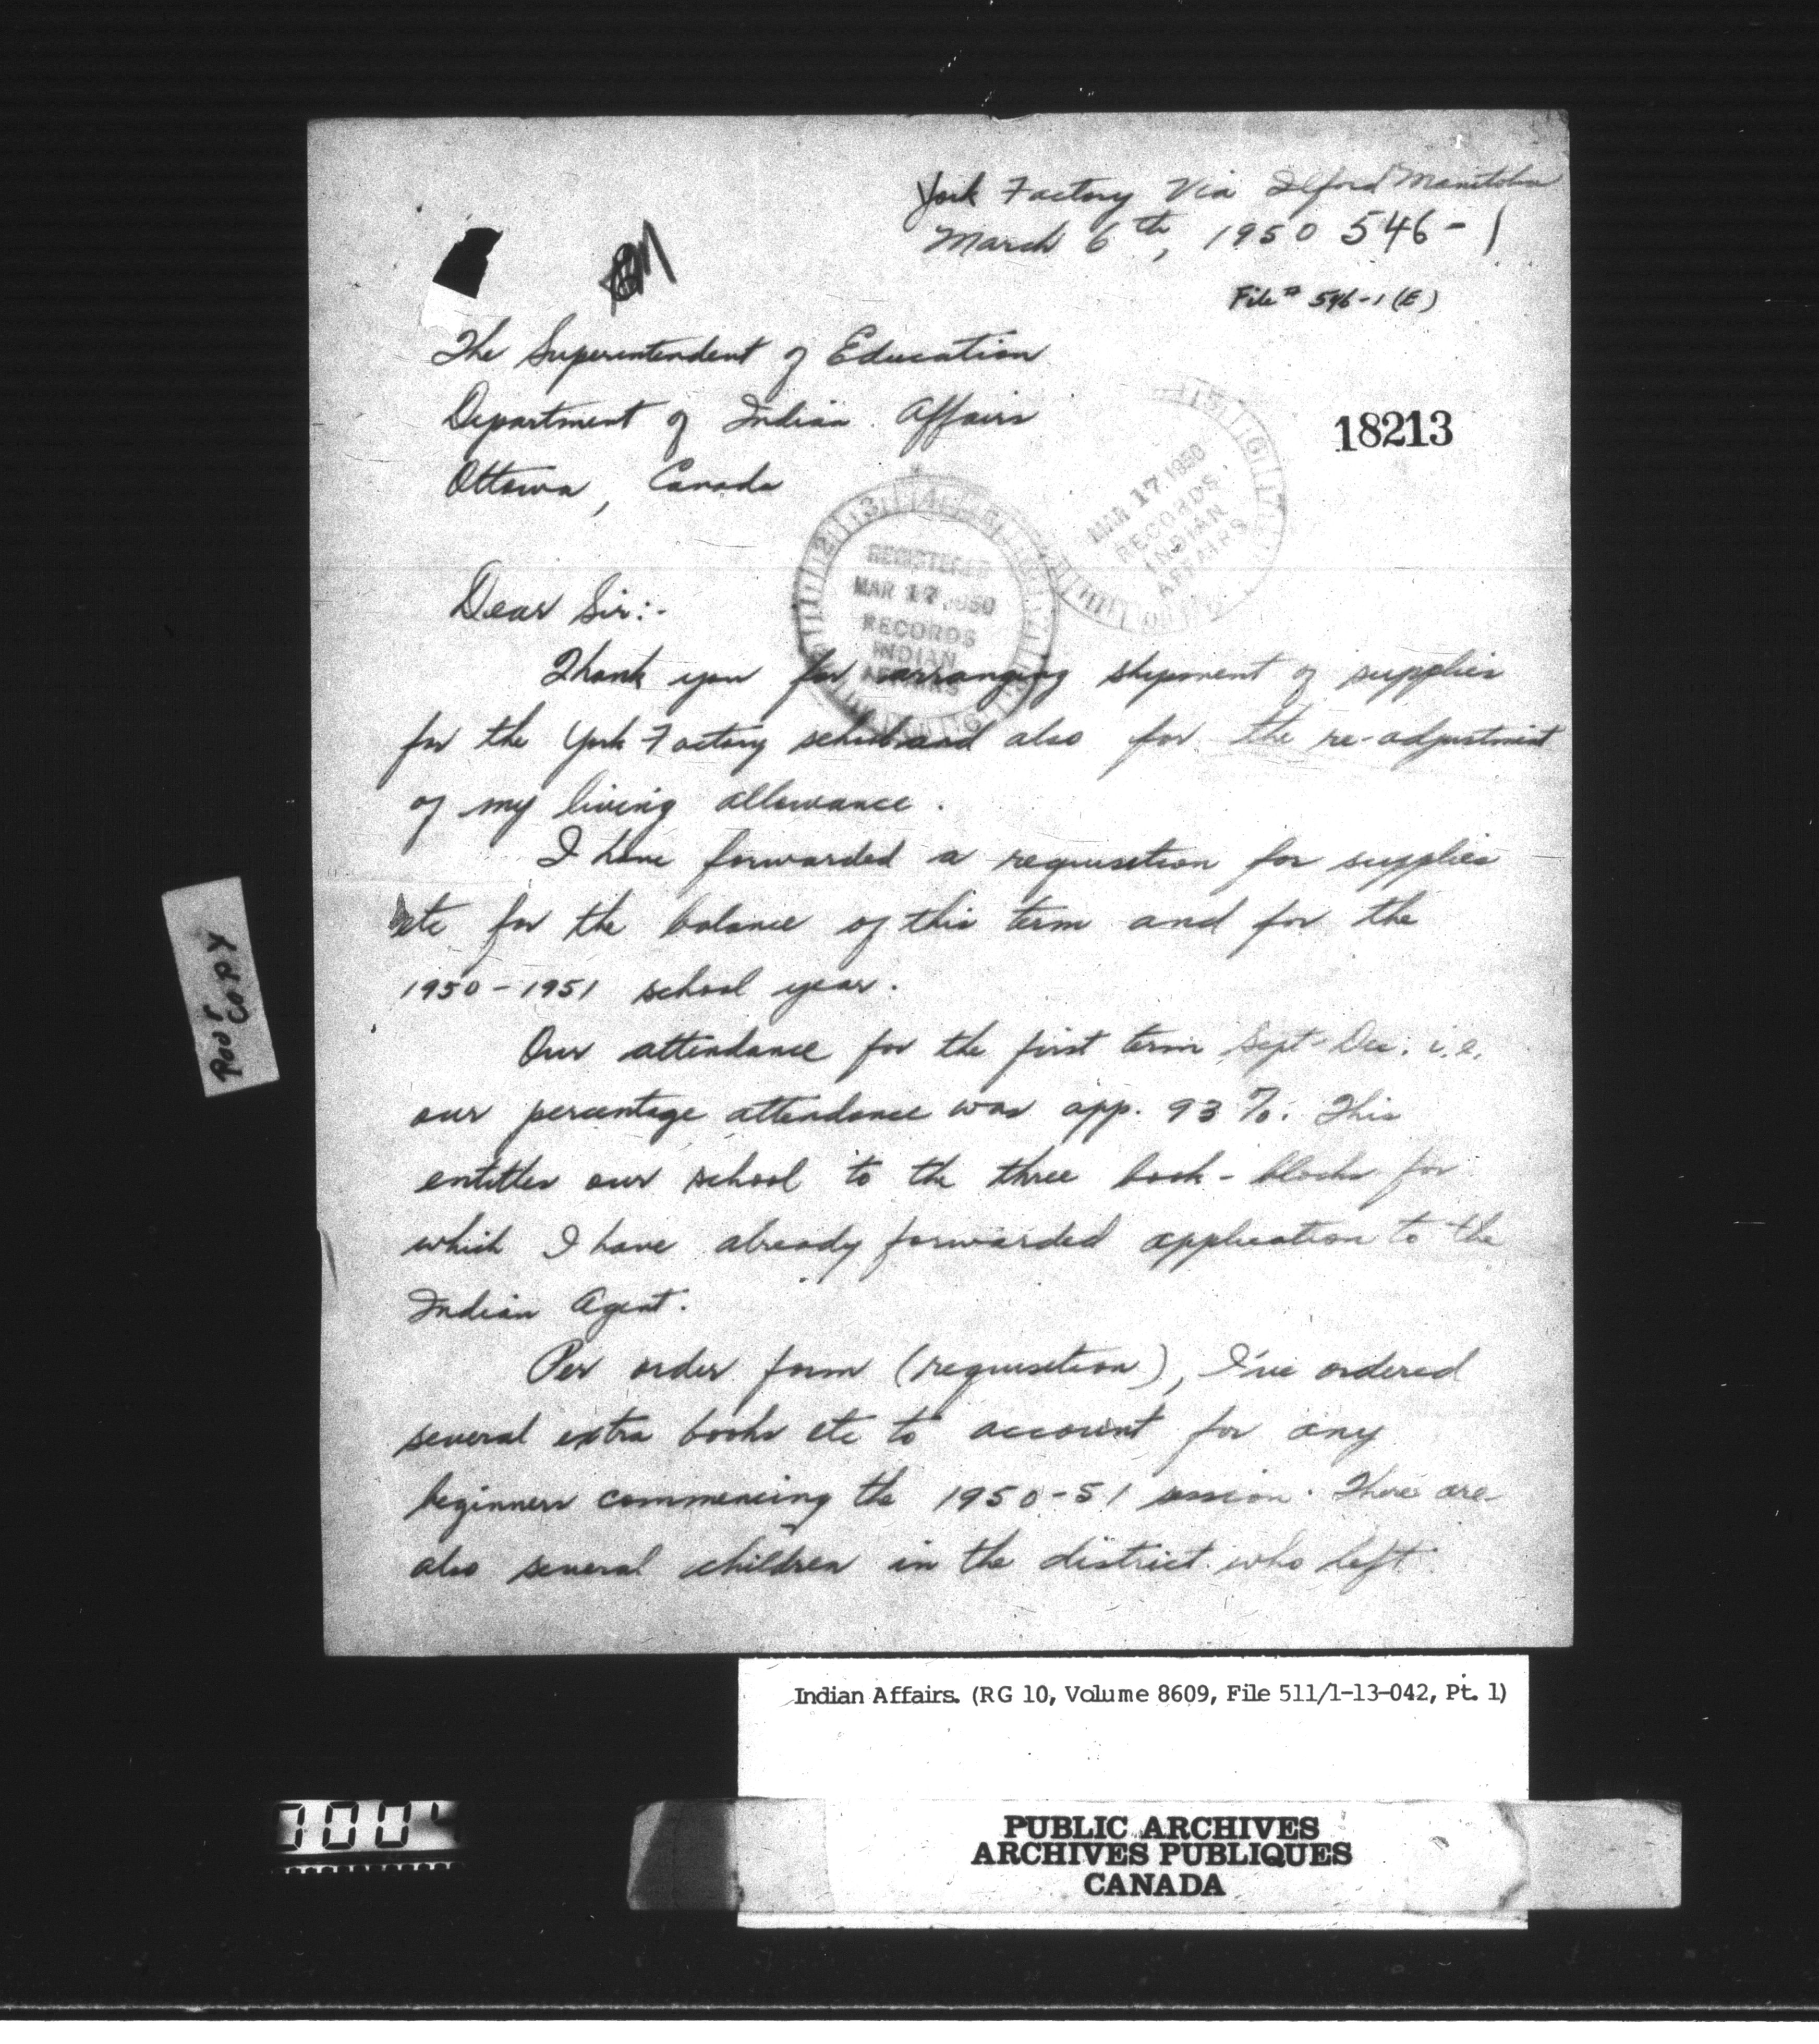 York Factory Via Ilford Manitoba
March 6th, 1950 546-1
File # 546-1 (E)
The Superintendent of Education
Department of Indian Affairs
Ottawa, Canada
18213
MAR 17 1950
RECORDS
INDIAN
AFFAIRS
REGISTERED
MAR 17 1950
RECORDS
INDIAN
AFFAIRS
Dear Sir:-
Thank you for arranging shipment of supplies
for the York Factory school and also for the re-adjustment
of my living allowance.
I have forwarded a requisition for supplies
etc for the balance of this term and for the
1950-1951 school year.
Our attendance for the first term Sept-Dec. i.e.
our percentage attendance was app. 93%. This
entitles our school to the three book-blocks for
which I have already forwarded application to the
Indian Agent.
Per order form (requisition), I've ordered
several extra books etc to account for any
beginners commencing the 1950-51 session. There are
also several children in the district who left
POOR
COPY
Indian Affairs. (RG 10, Volume 8609, File 511/1-13-042, Pt. 1)
PUBLIC ARCHIVES
ARCHIVES PUBLIQUES
CANADA